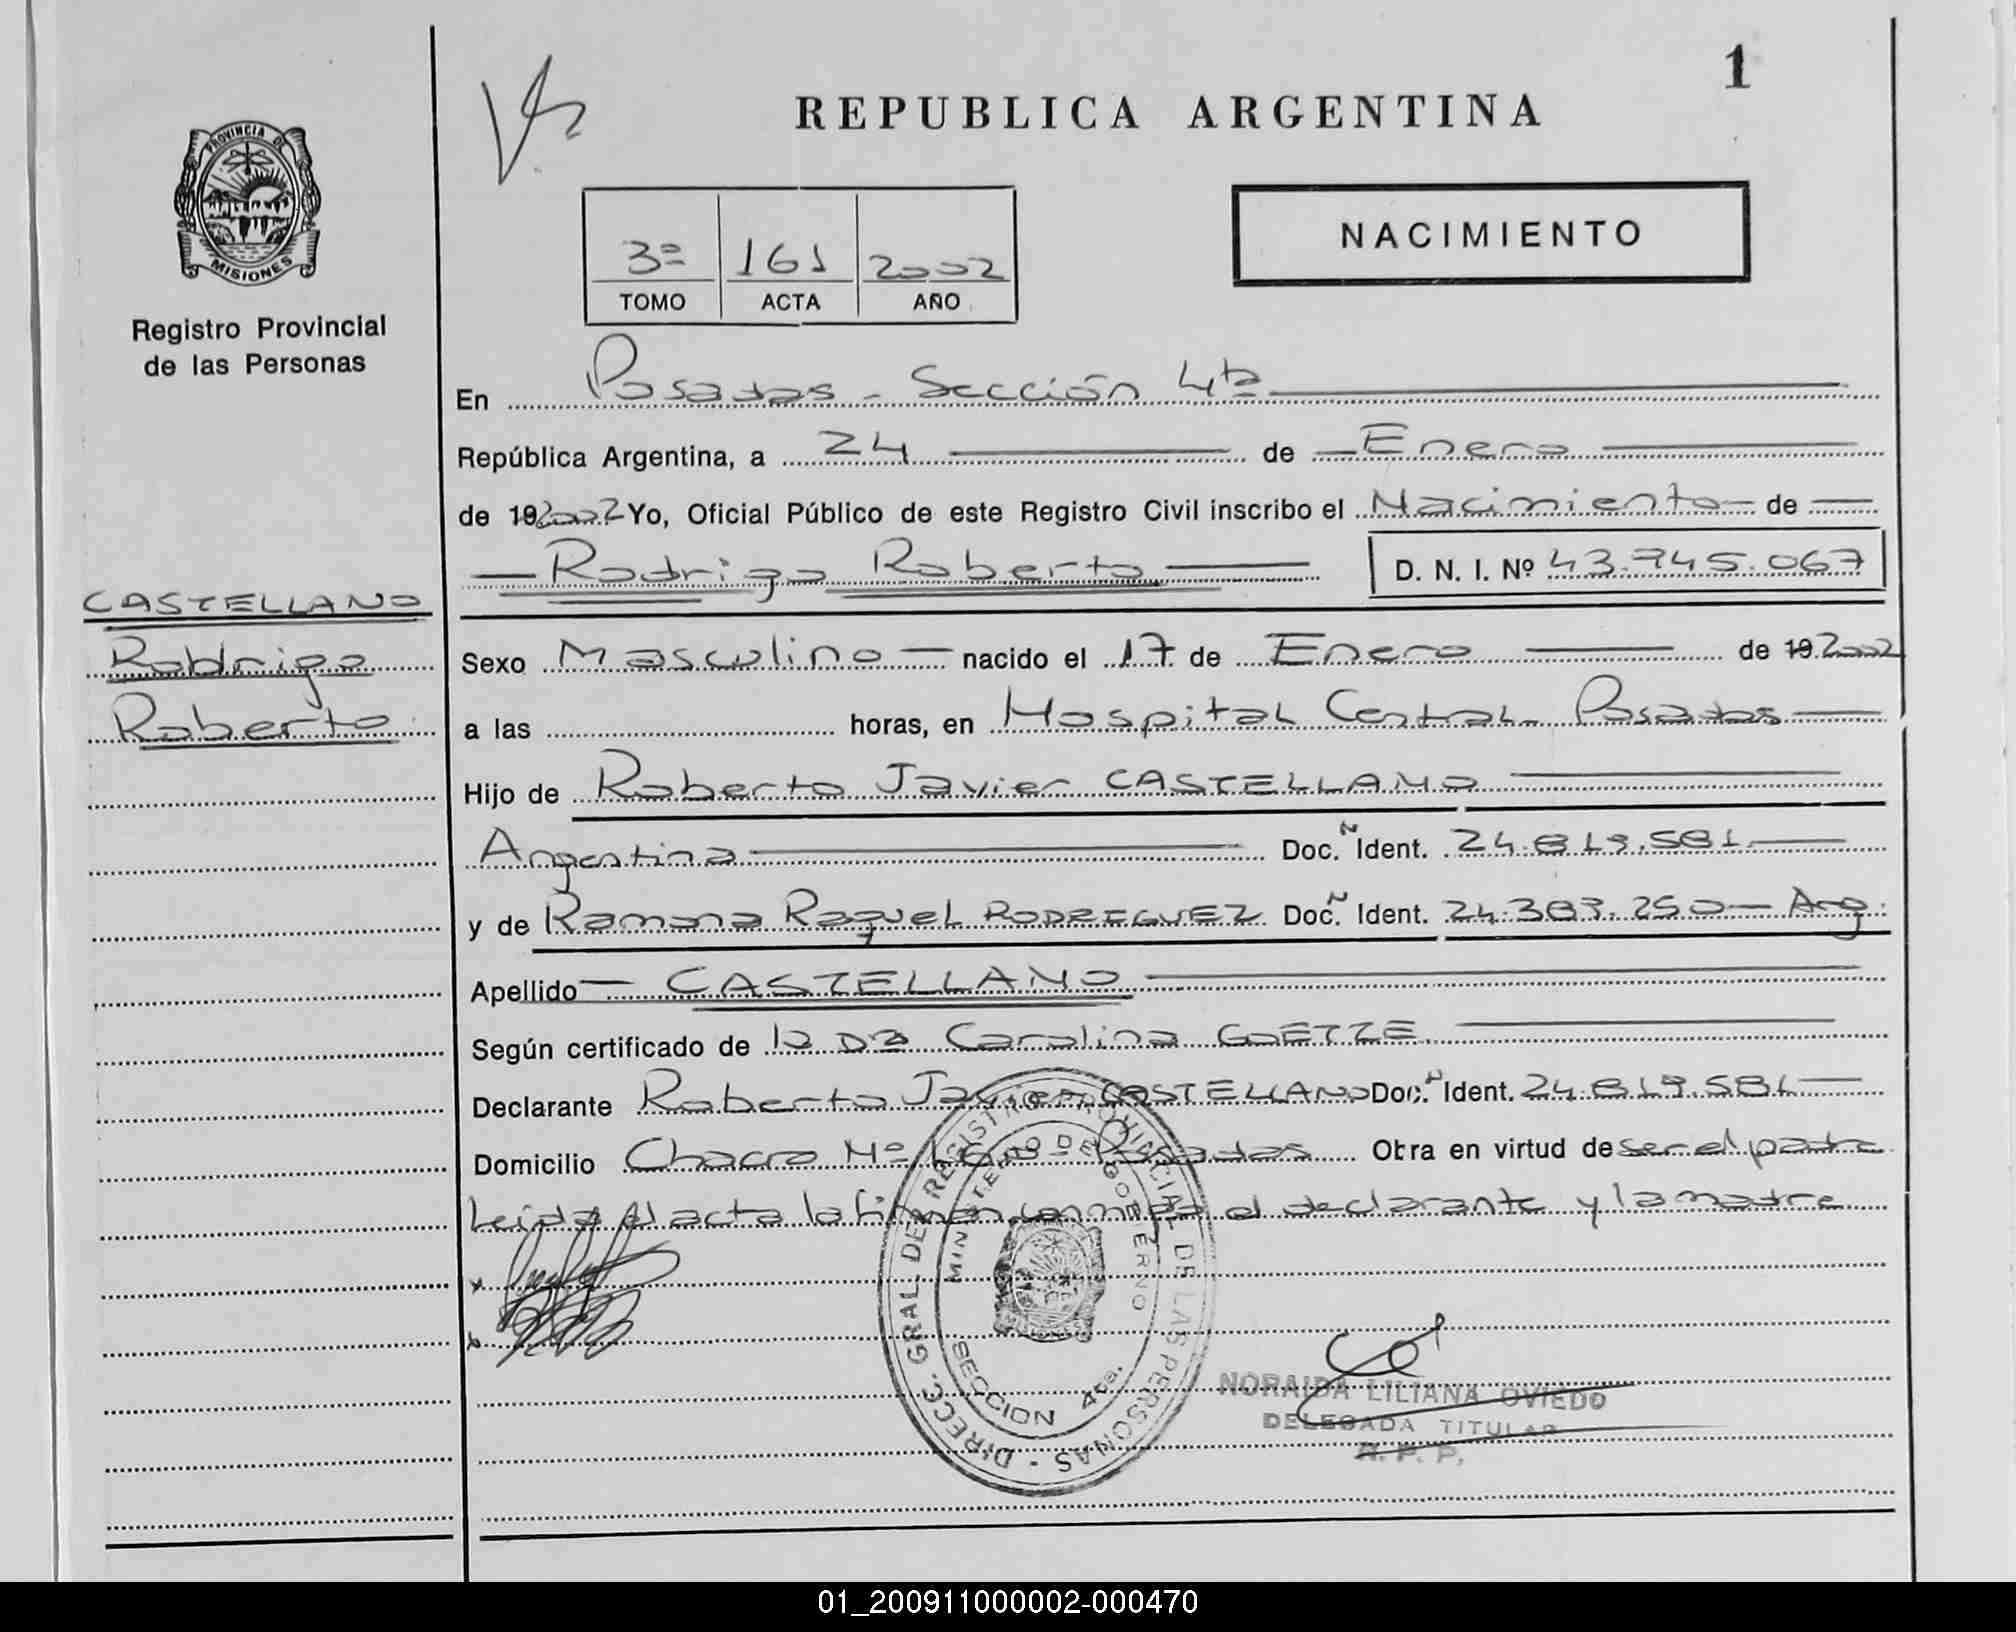 1
REPUBLICA ARGENTINA
PROVINCIA DE
MISIONES
Registro Provincial
de las Personas
3ª 161 2002
TOMO ACTA AÑO
NACIMIENTO
En Posadas - Sección 4ta
República Argentina, a 24 de Enero
de 192002 Yo, Oficial Público de este Registro Civil inscribo el Nacimiento de
Rodrigo Roberto D. N. I. Nº 43.745.067
CASTELLANO
Rodrigo
Roberto
Sexo Masculino nacido el 17 de Enero de 19 2002
a las horas, en Hospital Central - Posadas
Hijo de Roberto Javier CASTELLANO
Argentina Doc. Ident. 24.819.581
y de Ramona Raquel RODRIGUEZ Doc. Ident. 24.383.250 - Arg.
Apellido CASTELLANO
Según certificado de la Dra Carolina GOETZE
Declarante Roberto Javier CASTELLANO Doc. Ident. 24.819.581
Domicilio Chacra Nº Posadas Obra en virtud de ser el padre
Leida el acta la firman conmigo el declarante y la madre
DIRECC. GRAL. DE REGISTRO PROVINCIAL DE LAS PERSONAS
MINISTERIO DE GOBIERNO
SECCION 4ta.
NORAIDA LILIANA OVIEDO
DELEGADA TITULAR
R. P. P.
01_200911000002-000470